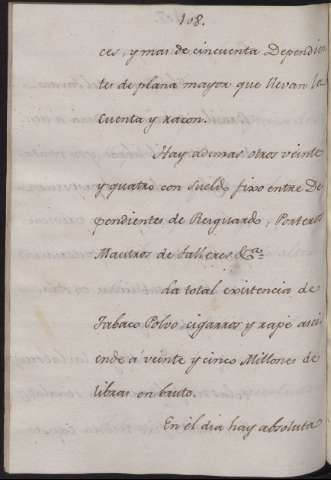 108.
ces, y mas de cincuenta Dependien
tes de plana mayor que llevan la
cuenta y razon.
Hay ademas otros veinte
y quatro con sueldo fixo entre De
pendientes de Resguardo, Porteros
Maestros de Talleres &ª
La total existencia de
Tabaco Polvo cigarros y rapé asci
ende á veinte y cinco Millones de
libras en bruto.
En el dia hay absoluta